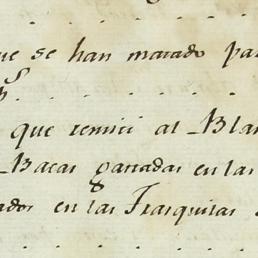 ue se han matado pa
que remiti al Blan
Bacas gastadas en las
ados en las Frasquitas